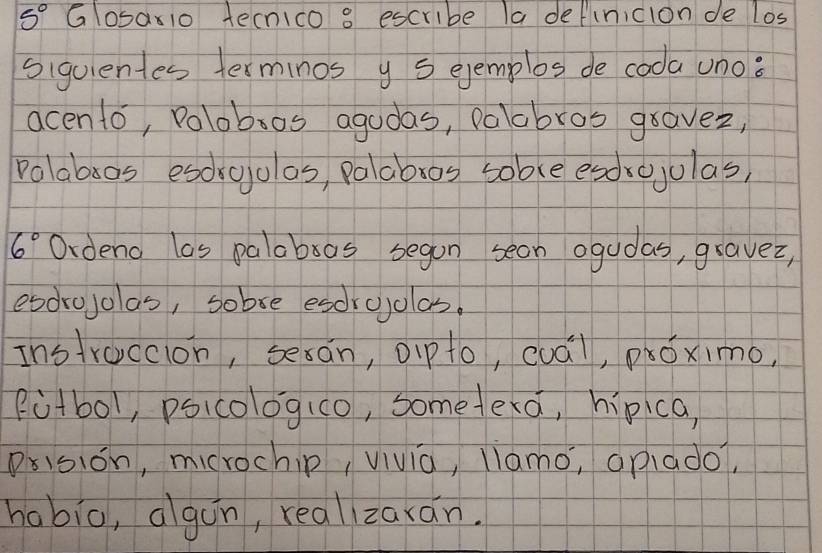 5° Glosario tecnico: escribe la definicion de los
siguientes terminos y 5 ejemplos de cada uno:
acentó, Palabras agudas, Palabras gravez,
Palabras esdrujulas, palabras sobre esdrujulas,
6° Ordena las palabras segun sean agudas, gravez,
esdrujolas, sobre esdrujulas.
Instrucción, serán, Dipto, cuál, próximo,
Fútbol, psicológico, someterá, hípica,
Prisión, microchip, vivía, llamó, apiadó,
habia, algún, realizarán.